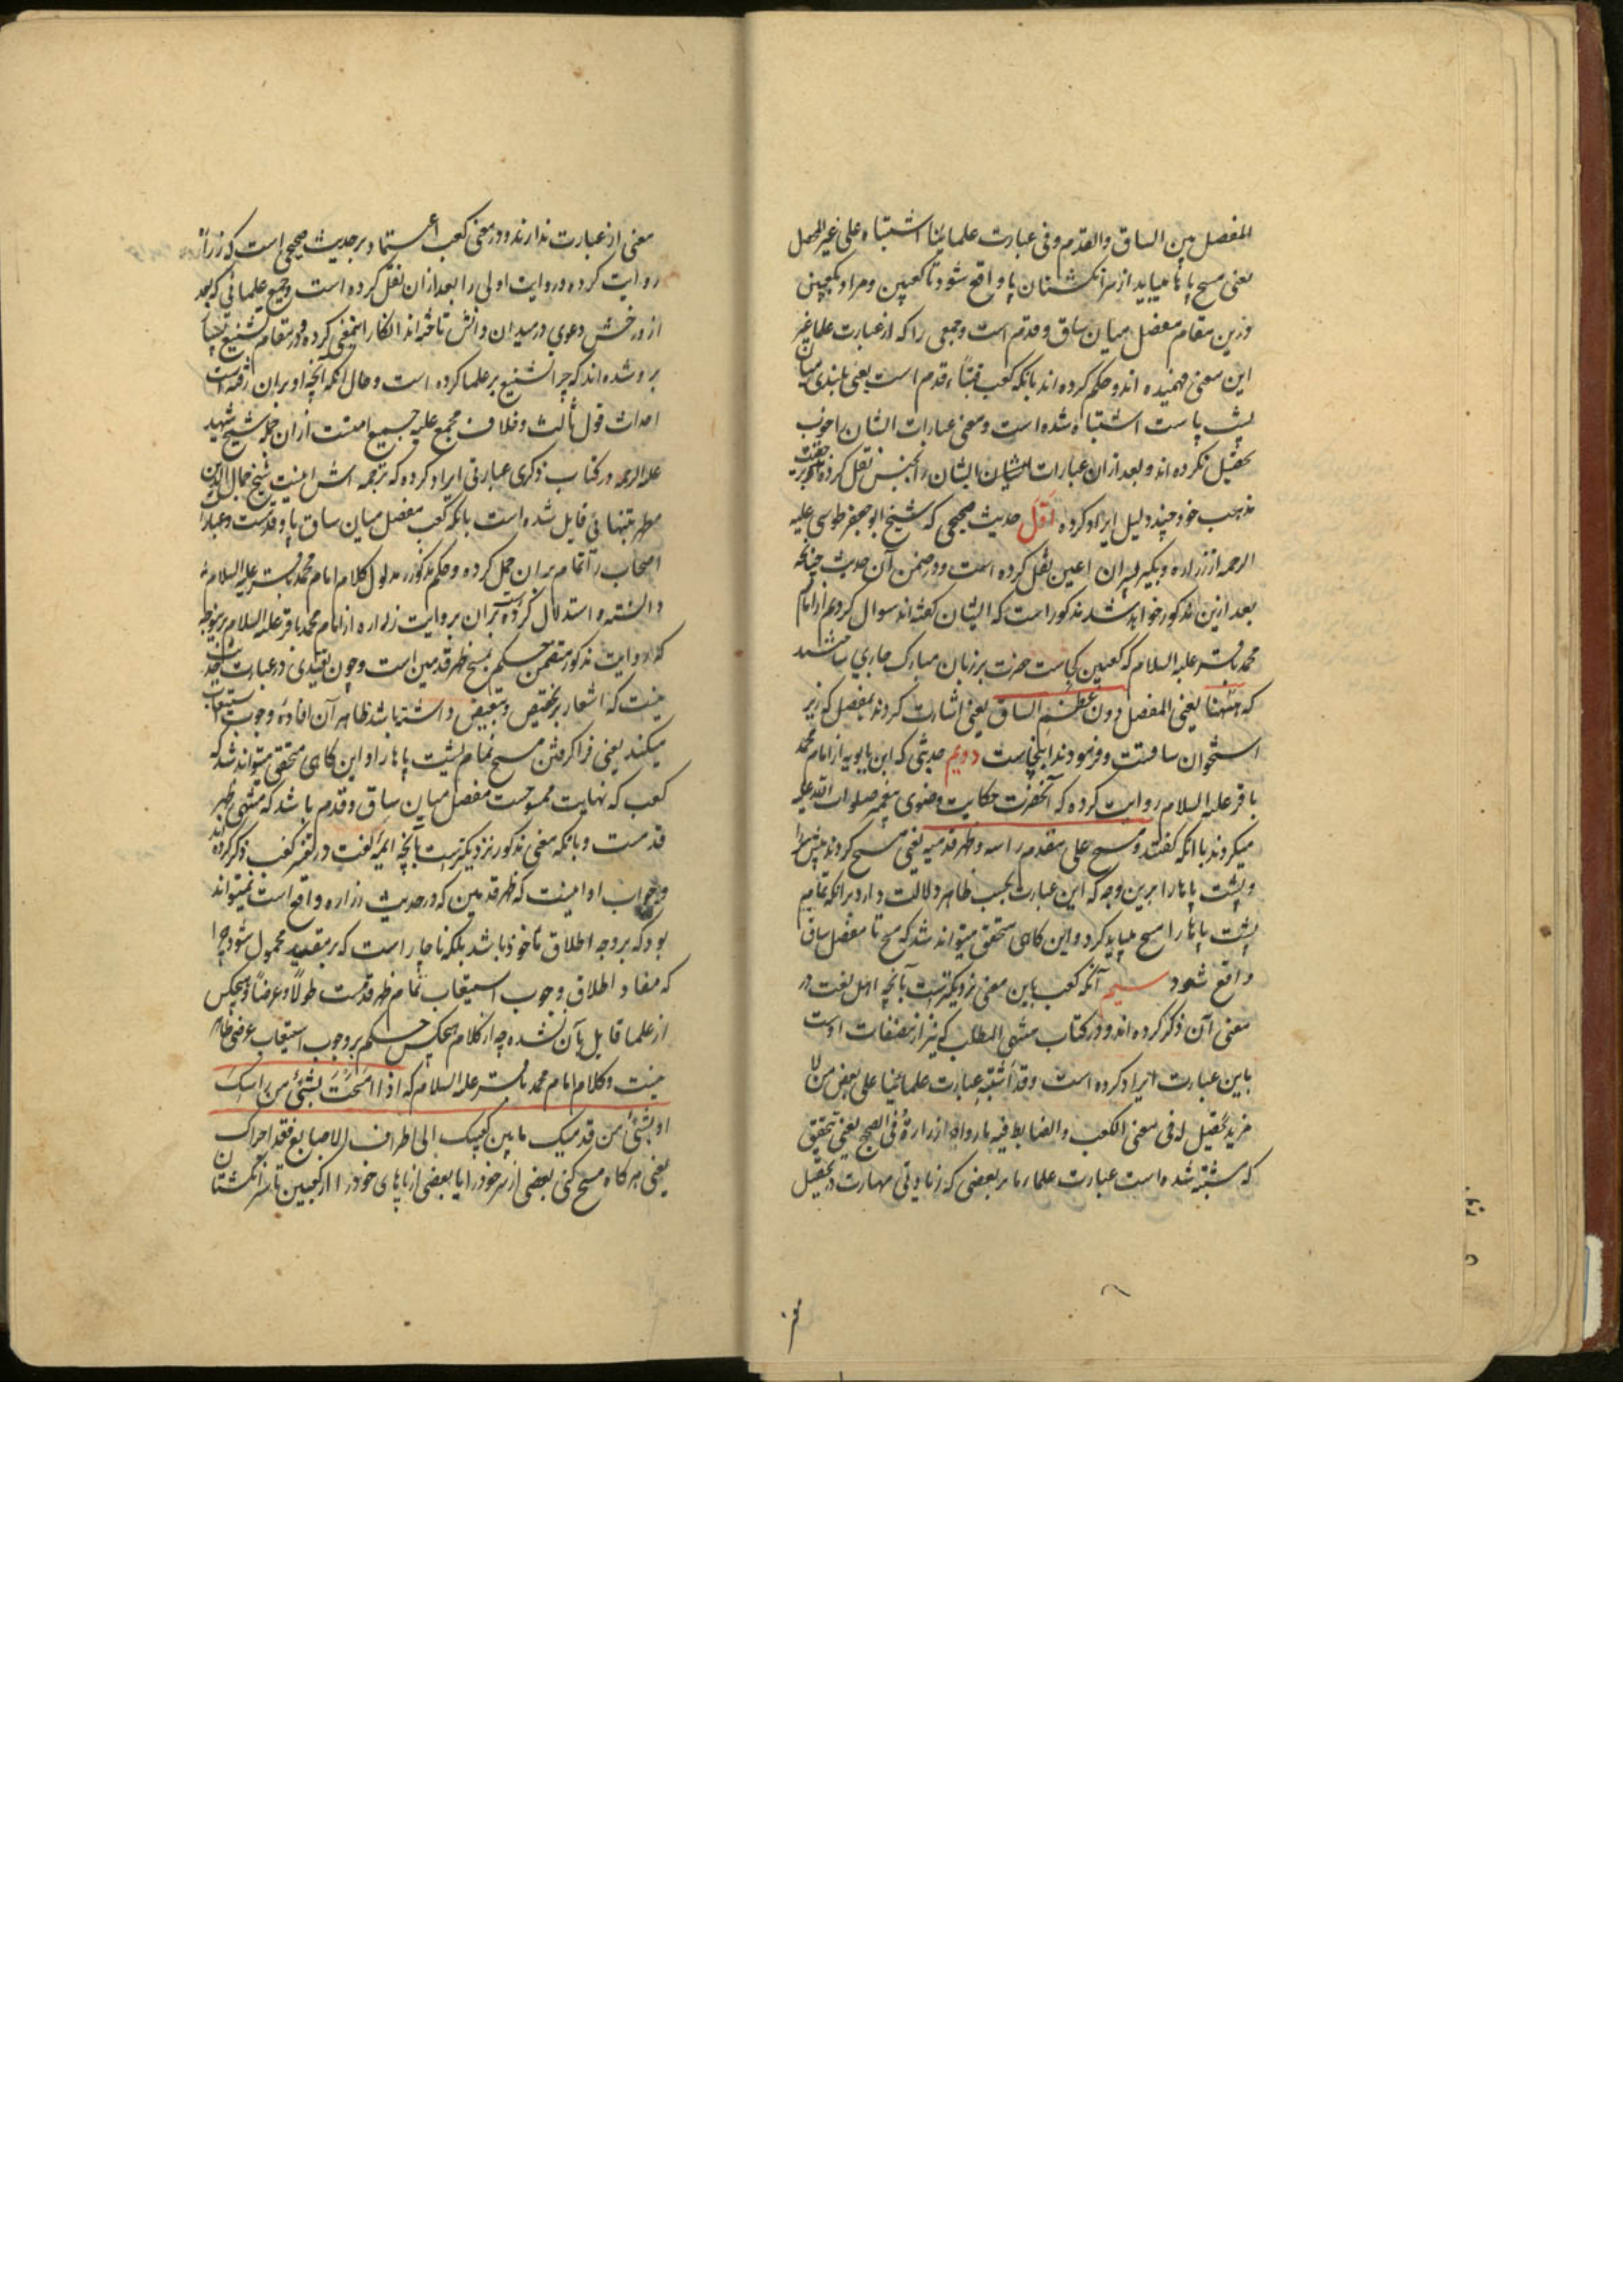 المفصل بین الساق والقدم وفی عبارت علمائنا اشتباه علی غیر المحصل
یعنی مسح پاها میباید از سر انکشتان پا واقع شود تا کعبین ومراد بکعبین
درین مقام مفصل میان ساق وقدم است وجمعی را که از عبارت علما غیر
این معنی فهمیده اند وحکم کرده اند بانکه کعب قبتا قدم است یعنی بلندی میان
پشت پاست اشتباه شده است ومعنی عبارات ایشان را خوب
تحصیل نکرده اند وبعد از ان عبارات ایشان را بجنس نقل کرده وبر حقیقت
مذهب خود چند دلیل ایراد کرده اول حدیث صحیحی که شیخ ابو جعفر طوسی علیه
الرحمه از زراره وبکیر پسران اعین نقل کرده است ودر ضمن آن حدیث چنانچه
بعد ازین مذکور خواهد شد مذکور است که ایشان گفته اند سوال کردیم از امام
محمد باقر علیه السلام که کعبین کجاست حضرت بر زبان مبارک جاری ساختند
که ههنا یعنی المفصل دون عظم الساق یعنی اشارت کردند بمفصل که زیر
استخوان ساقست وفرمودند اینجاست دویم حدیثی که ابن بابویه از امام محمد
باقر علیه السلام روایت کرده که آنحضرت حکایت وضوی پیغمبر صلوات الله علیه
میکردند تا انکه کفتند ومسح علی مقدم راسه وظهر قدمیه یعنی مسح کردند پیش سر را
وپشت پاها را برین وجه که این عبارت بحسب ظاهر دلالت دارد برانکه تمامی
پشت پاها را مسح میباید کرد واین کاهی متحقق میتواند شد که مسح تا مفصل ساق
واقع شود سیم آنکه کعب باین معنی نزدیکترست بآنچه اهل لغت در
معنی آن ذکر کرده اند ودر کتاب منتهی المطلب که نیز از مصنفات اوست
باین عبارت ایراد کرده است وقد اشتبه عبارت علمائنا علی بعض من لا
مزید تحصیل له فی معنی الکعب والضابط فیه ما رواه زرارة فی الصحیح یعنی بتحقیق
که مشتبه شده است عبارت علماء ما بر بعضی که زیادتی مهارت در تحصیل
معنی از عبارت ندارند ودر معنی کعب اعتماد بر حدیث صحیحی است که زراره
روایت کرده وروایت اولی را بعد از ان نقل کرده است وجمیع علمائی که بعد
از ورخش دعوی در میدان دانش تاخته اند انکار این معنی کرده ودر مقام تشنیع
برو شده اند که چرا تشنیع بر علما کرده است وحال آنکه آنچه او بران رفته است
احداث قول ثالث وخلاف مجمع علیه جمیع امتست از ان جمله شیخ شهید
علیه الرحمه در کتاب ذکری عبارتی ایراد کرده که ترجمه اش اینست شیخ جمال الدین
مطهر بتنهائی قایل شده است بانکه کعب مفصل میان ساق پا وقدمست وعبارات
اصحاب را تمام بران حمل کرده وحکم مذکور را مدلول کلام امام محمد باقر علیه السلام
دانسته واستدلال کرده است بران بروایت زراره از امام محمد باقر علیه السلام برین وجه
که روایت مذکور متضمن حکم بمسح ظهر قدمین است وچون تقییدی در عبارت حدیث
نیست که اشعار بتخصیص وتبعیض داشته باشد ظاهر آن افادۀ وجوب استیعاب
میکند یعنی فرا کرفتن مسح تمام پشت پاها را واین کاهی متحقق میتواند شد که
کعب که نهایت ممسوحست مفصل میان ساق وقدم باشد که منتهی ظهر
قدمست وبانکه معنی مذکور نزدیکترست بآنچه ائمۀ لغت در تفسیر کعب ذکر کرده اند
وجواب او اینست که ظهر قدمین که در حدیث زراره واقع است نمیتواند
بود که بر وجه اطلاق ماخوذ باشد بلکه ناچار است که بر مقید محمول شود چرا
که مفاد اطلاق وجوب استیعاب تمام ظهر قدمست طولا وعرضا وهیچکس
از علما قایل بآن نشده چه از کلام هیچکس حکم بر وجوب استیعاب عرضی ظاهر
نیست وکلام امام محمد باقر علیه السلام که اذا مسحت بشئ من راسک
او بشئ من قدمیک ما بین کعبیک الی اطراف الاصابع فقد اجزاک
یعنی هر کاه مسح کنی بعضی از سر خود را یا بعضی از پاهای خود را از کعبین تا سر انکشتان